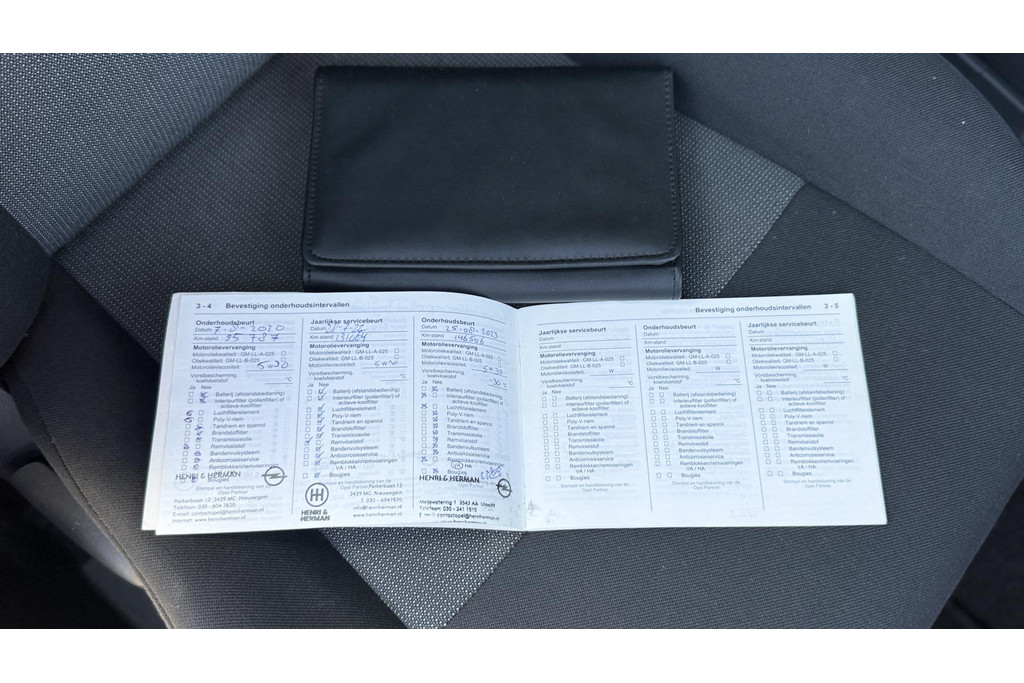 3 - 4 Bevestiging onderhoudsintervallen
Onderhoudsbeurt
Datum 2020
Km-stand 95 787
Motorolievervanging
Motoroliekwaliteit: GM-LL-A-025
Oliekwaliteit: GM-LL-B-025
Motorolieviscositeit: 5 W 30
Vorstbescherming,
koelvloeistof °C
Ja Nee
Batterij (afstandsbediening)
Interieurfilter (pollenfilter) of
actieve koolfilter
Luchtfilterelement
Poly-V-riem
Tandriem en spanrol
Brandstoffilter
Transmissieolie
Remvloeistof
Bandenvulsysteem
Anticorrosieservice
Remblokken/remvoeringen
VA / HA
Bougies
HENRI & HERMAN
Stempel en handtekening van de
Opel Partner
Parkerbaan 12 3439 MC Nieuwegein
Telefoon: 030 - 604 7820
E-mail: contactopel@henriherman.nl
Internet: www.henriherman.nl
Jaarlijkse servicebeurt
Datum
Km-stand 131004
Motorolievervanging
Motoroliekwaliteit: GM-LL-A-025
Oliekwaliteit: GM-LL-B-025
Motorolieviscositeit: 5 W
Vorstbescherming,
koelvloeistof °C
Ja Nee
Batterij (afstandsbediening)
Interieurfilter (pollenfilter) of
actieve koolfilter
Luchtfilterelement
Poly-V-riem
Tandriem en spanrol
Brandstoffilter
Transmissieolie
Remvloeistof
Bandenvulsysteem
Anticorrosieservice
Remblokken/remvoeringen
VA / HA
Bougies
Stempel en handtekening van de
Opel Partner
Parkerbaan 12
3439 MC Nieuwegein
T 030 - 6047820
info@henriherman.nl
www.henriherman.nl
HENRI &
HERMAN
Onderhoudsbeurt
Datum 25-05-2023
Km-stand 146566
Motorolievervanging
Motoroliekwaliteit: GM-LL-A-025
Oliekwaliteit: GM-LL-B-025
Motorolieviscositeit: 5 W 30
Vorstbescherming,
koelvloeistof -30 °C
Ja Nee
Batterij (afstandsbediening)
Interieurfilter (pollenfilter) of
actieve koolfilter
Luchtfilterelement
Poly-V-riem
Tandriem en spanrol
Brandstoffilter
Transmissieolie
Remvloeistof
Bandenvulsysteem
Anticorrosieservice
Remblokken/remvoeringen
VA / HA
Bougies
HENRI & HERMAN
Meijewetering 1 3543 AA Utrecht
Telefoon: 030 - 241 1515
E-mail: contactopel@henriherman.nl
www.henriherman.nl
Bevestiging onderhoudsintervallen 3 - 5
Jaarlijkse servicebeurt
Datum
Km-stand
Motorolievervanging
Motoroliekwaliteit: GM-LL-A-025
Oliekwaliteit: GM-LL-B-025
Motorolieviscositeit: W
Vorstbescherming,
koelvloeistof °C
Ja Nee
Batterij (afstandsbediening)
Interieurfilter (pollenfilter) of
actieve koolfilter
Luchtfilterelement
Poly-V-riem
Tandriem en spanrol
Brandstoffilter
Transmissieolie
Remvloeistof
Bandenvulsysteem
Anticorrosieservice
Remblokken/remvoeringen
VA / HA
Bougies
Stempel en handtekening van de
Opel Partner
Onderhoudsbeurt
Datum
Km-stand
Motorolievervanging
Motoroliekwaliteit: GM-LL-A-025
Oliekwaliteit: GM-LL-B-025
Motorolieviscositeit: W
Vorstbescherming,
koelvloeistof °C
Ja Nee
Batterij (afstandsbediening)
Interieurfilter (pollenfilter) of
actieve koolfilter
Luchtfilterelement
Poly-V-riem
Tandriem en spanrol
Brandstoffilter
Transmissieolie
Remvloeistof
Bandenvulsysteem
Anticorrosieservice
Remblokken/remvoeringen
VA / HA
Bougies
Stempel en handtekening van de
Opel Partner
Jaarlijkse servicebeurt
Datum
Km-stand
Motorolievervanging
Motoroliekwaliteit: GM-LL-A-025
Oliekwaliteit: GM-LL-B-025
Motorolieviscositeit: W
Vorstbescherming,
koelvloeistof °C
Ja Nee
Batterij (afstandsbediening)
Interieurfilter (pollenfilter) of
actieve koolfilter
Luchtfilterelement
Poly-V-riem
Tandriem en spanrol
Brandstoffilter
Transmissieolie
Remvloeistof
Bandenvulsysteem
Anticorrosieservice
Remblokken/remvoeringen
VA / HA
Bougies
Stempel en handtekening van de
Opel Partner